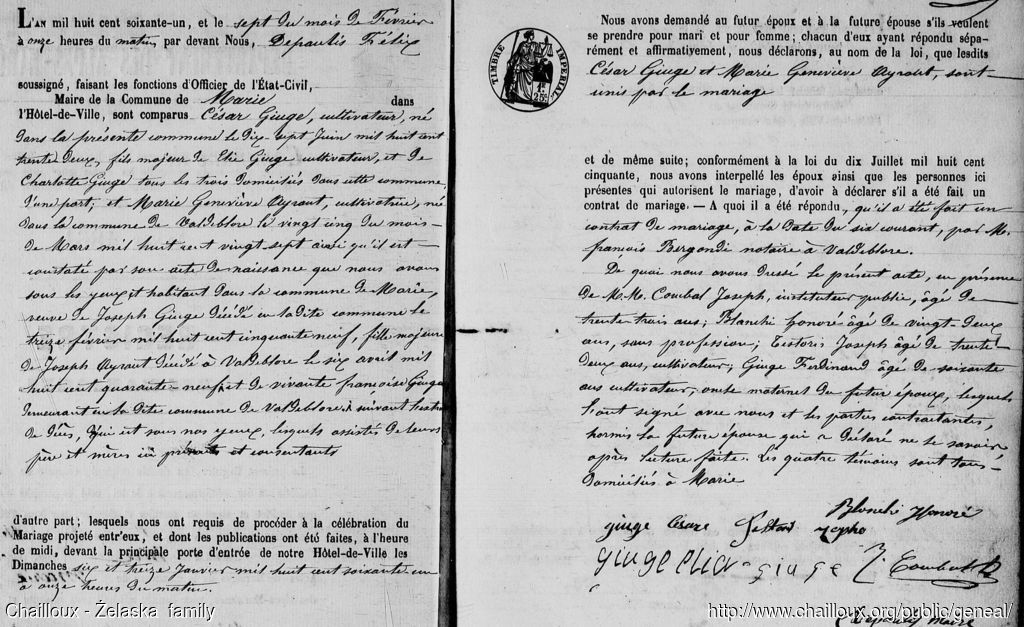 L'AN mil huit cent soixante-un, et le sept du mois de Février
à onze heures du matin par devant Nous, Depautis Félix
soussigné, faisant les fonctions d'Officier de l'État-Civil,
Maire de la Commune de Marie dans
l'Hôtel-de-Ville, sont comparus César Giuge, cultivateur, né
dans la présente commune le dix-sept Juin mil huit cent
trente deux, fils majeur de Elie Giuge cultivateur, et de
Charlotte Giuge tous les trois domiciliés dans cette commune,
d'une part; et Marie Geneviève Ayraut, cultivatrice, né
dans la commune de Valdeblore le vingt cinq du mois
de Mars mil huit cent vingt sept ainsi qu'il est
constaté par son acte de naissance que nous avons
sous les yeux et habitant dans la commune de Marie,
veuve de Joseph Giuge décédé en la dite commune le
treize février mil huit cent cinquante neuf, fille majeure
de Joseph Ayraut décédé à Valdeblore le six avril mil
huit cent quarante neuf et de vivante françoise Giuge
demeurant en la dite commune de Valdeblore suivant
de décès, qui est sous nos yeux, lesquels assistés de leurs
père et mères ici présents et consentants
d'autre part; lesquels nous ont requis de procéder à la célébration du
Mariage projeté entr'eux, et dont les publications ont été faites, à l'heure
de midi, devant la principale porte d'entrée de notre Hôtel-de-Ville les
Dimanches six et treize Janvier mil huit cent soixante un
à onze heures du matin.
TIMBRE IMPERIAL
Nous avons demandé au futur époux et à la future épouse s'ils veulent
se prendre pour mari et pour femme; chacun d'eux ayant répondu sépa-
rément et affirmativement, nous déclarons, au nom de la loi, que lesdits
César Giuge et Marie Geneviève Ayraut, sont
unis par le mariage
et de même suite; conformément à la loi du dix Juillet mil huit cent
cinquante, nous avons interpellé les époux ainsi que les personnes ici
présentes qui autorisent le mariage, d'avoir à déclarer s'il a été fait un
contrat de mariage. — A quoi il a été répondu, qu'il a été fait un
contrat de mariage, à la date du six courant, par M.
françois Bergondi notaire à Valdeblore.
De quoi nous avons dressé le présent acte, en présence
de M.M. Combal Joseph, instituteur public, âgé de
trente trois ans; Blanchi honoré âgé de vingt-deux
ans, sans profession; Testoris Joseph âgé de trente
deux ans, cultivateur; Giuge Ferdinand âgé de soixante
ans cultivateur, oncle maternel du futur époux, lesquels
l'ont signé avec nous et les parties contractantes,
hormis la future épouse qui a déclaré ne le savoir
après lecture faite. Les quatre témoins sont tous
domiciliés à Marie
Blanchi Honoré
giuge César
giuge elia giuge J Combal
Maire
Chailloux - Želaska family
http://www.chailloux.org/public/geneal/